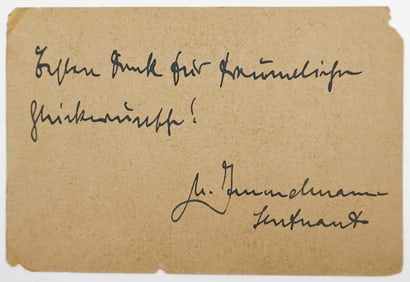 Besten Dank für freundliche
Glückwünsche!
M. Immelmann
Leutnant